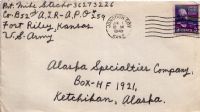 Pvt. Mike Stecho 36273226
Co-B 32nd A.I.R-A.P.O 259
Fort Riley, Kansas.
U-S-Army
Alaska Specialties Company,
Box-HF 1921,
Ketchikan, Alaska.